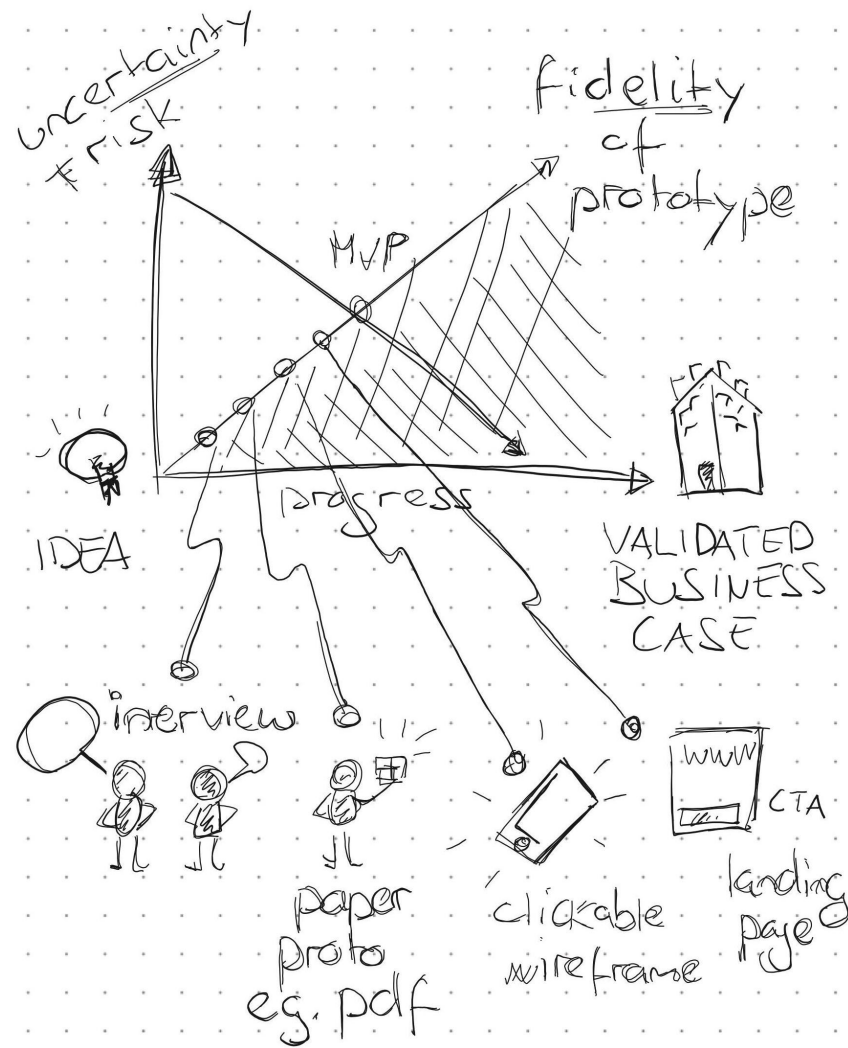 uncertainty
+ risk
fidelity
of
prototype
MVP
progress
IDEA
VALIDATED
BUSINESS
CASE
interview
WWW
CTA
paper
proto
eg. pdf
clickable
wireframe
landing
page